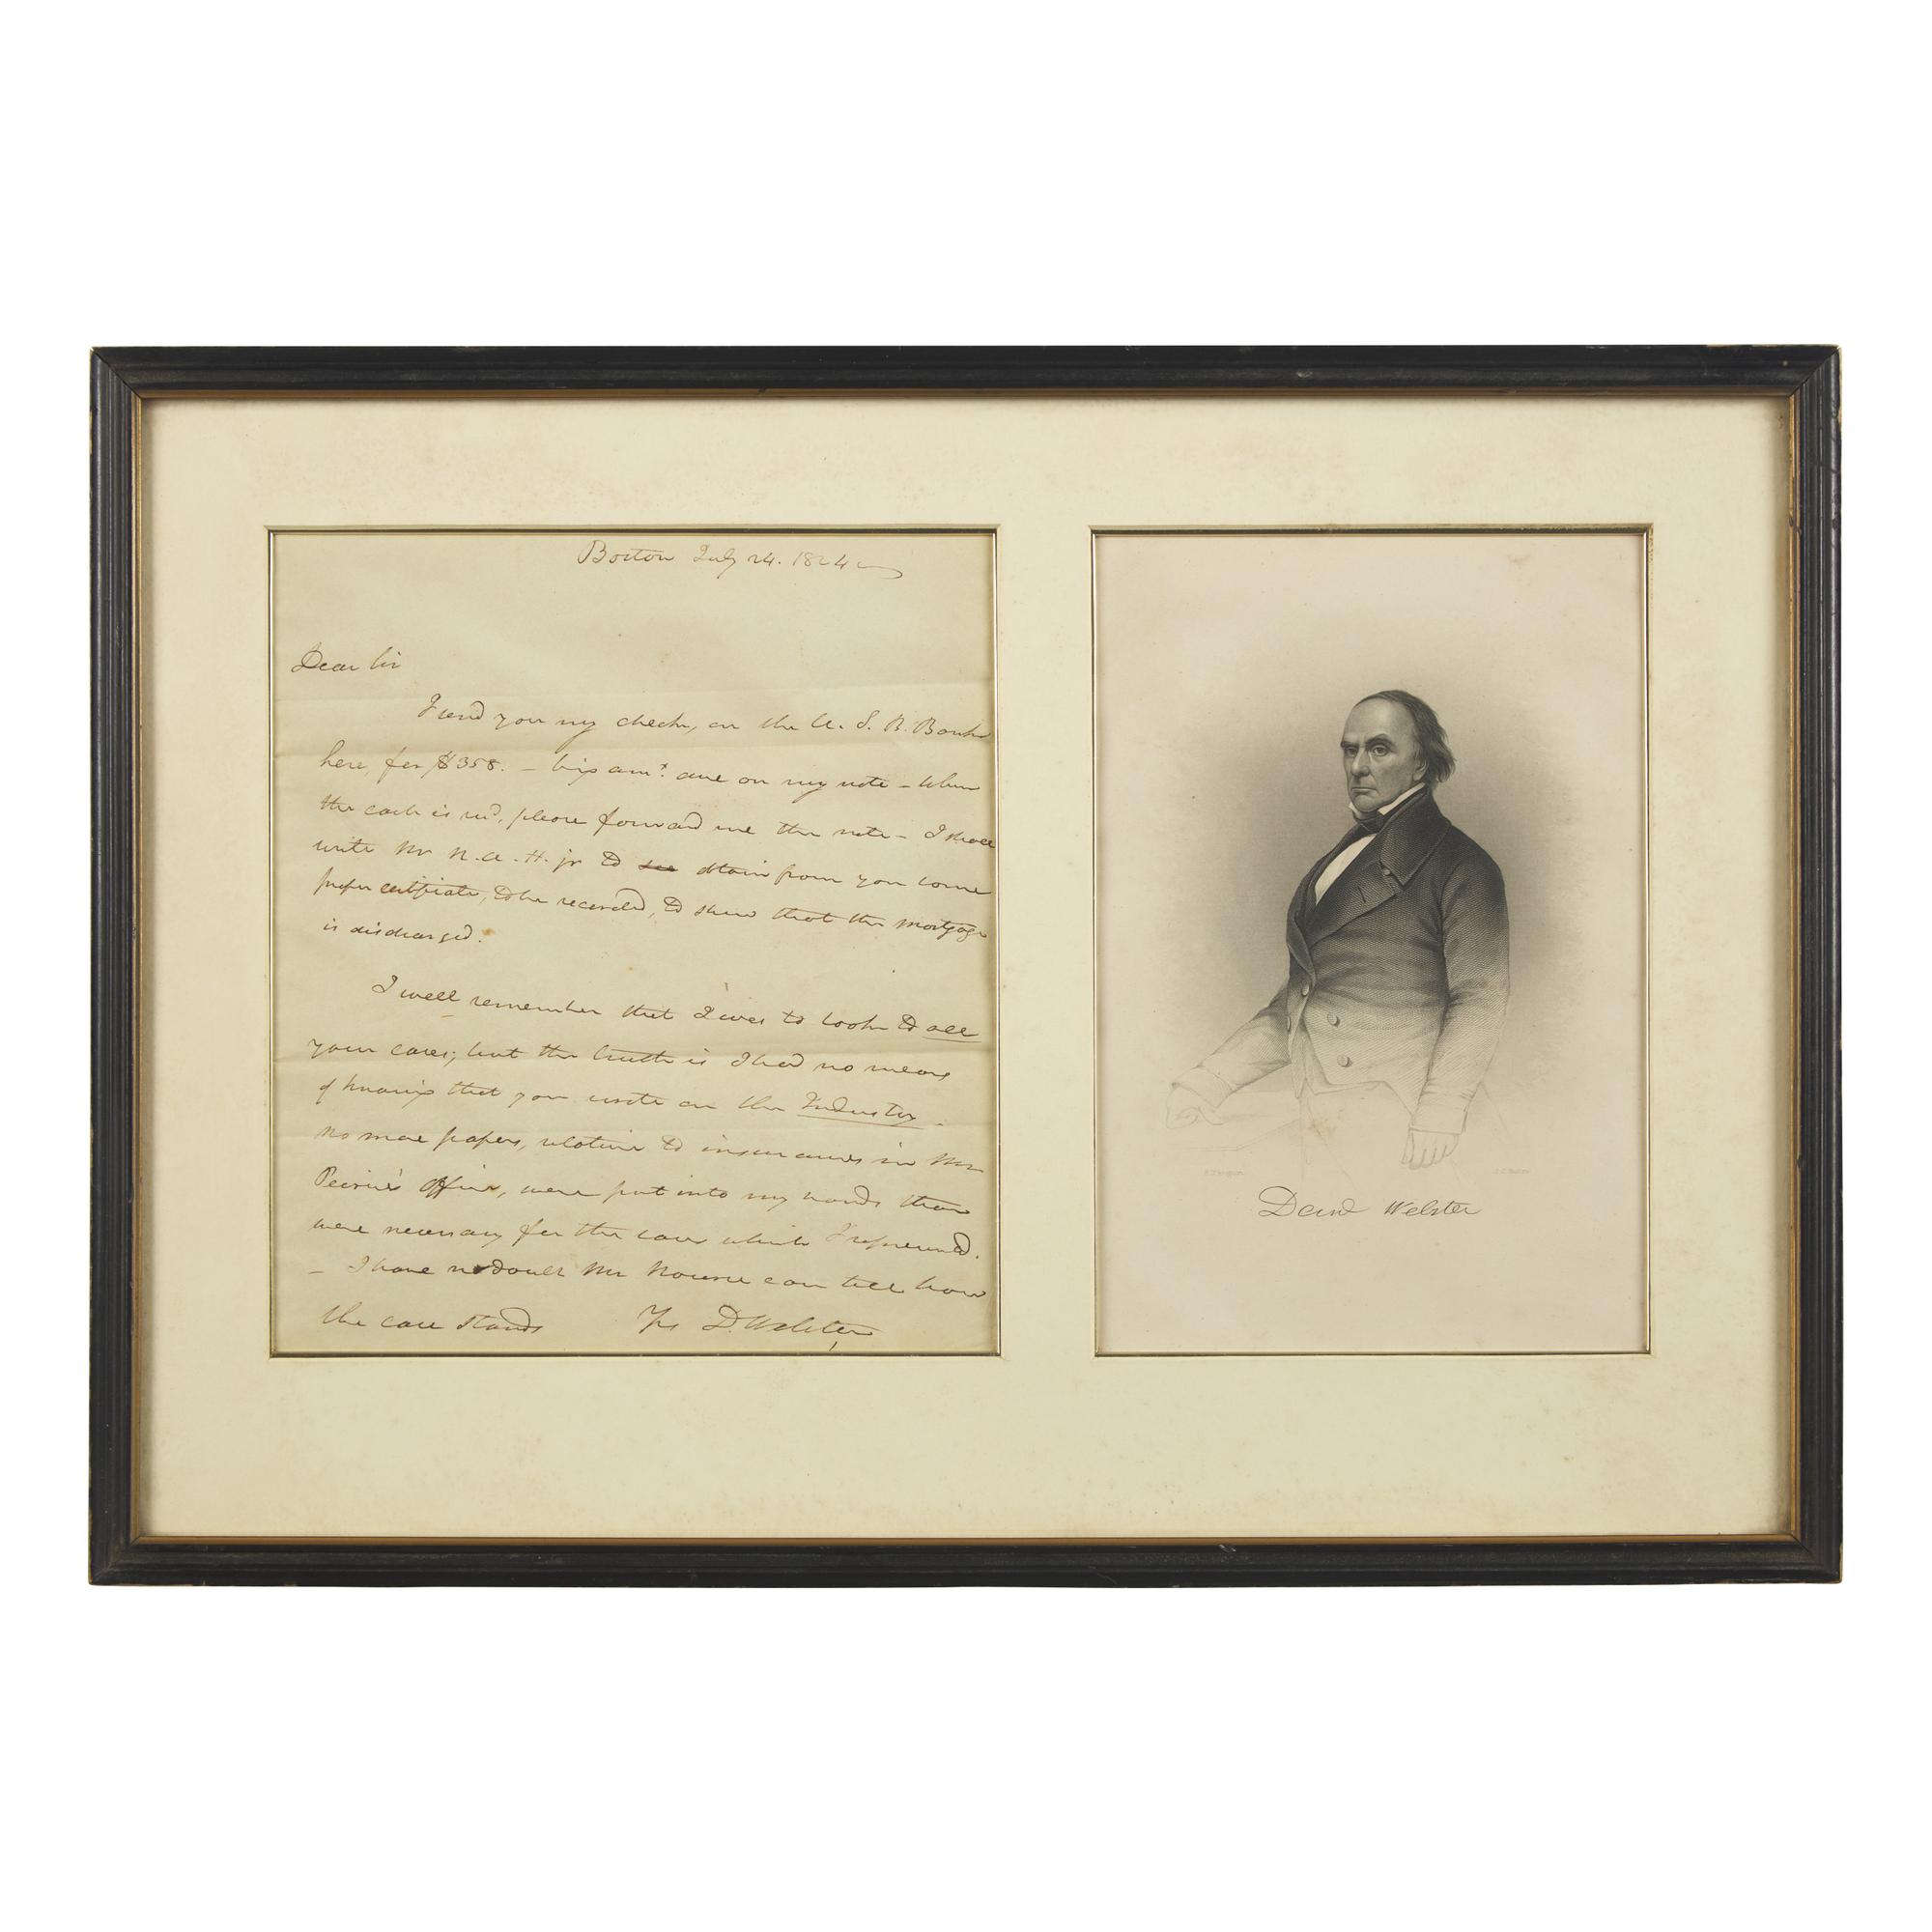 Boston July 24. 1824
Dear Sir
I send you my check, on the U. S. B. Bank
here, for $358. – being amt. due on my note – When
the cash is recd, please forward me the note – I shall
write Mr N. A. H. jr to see obtain from you some
proper certificate, to be recorded, to shew that the mortgage
is discharged.
I well remember that I was to look to all
your cases; but the truth is I had no means
of knowing that you wrote on the Industry.
No more papers, relative to insurances in Mr
Peirce's Office, were put into my hands than
were necessary for the case which I represented.
– I have no doubt Mr Nourse can tell how
the case stands Yrs D. Webster
Danl Webster